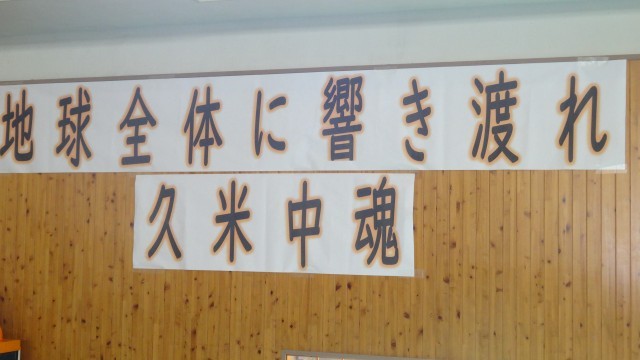 地球全体に響き渡れ
久米中魂